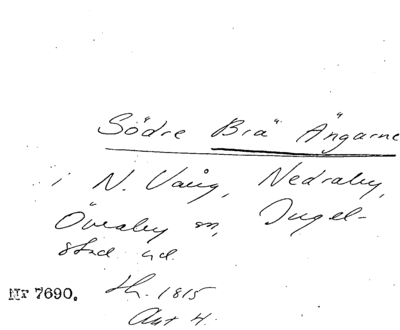 Södre Brä Ängarne
i N. Vång, Nedraby,
Övraby sn, Ingel-
stad hd.
Nr 7690. 1815
Akt 4.